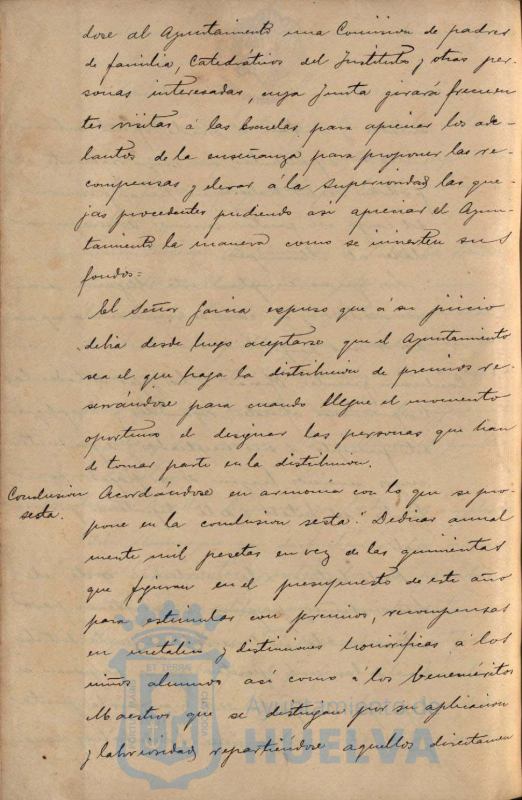 dose al Ayuntamiento una Comision de padres
de familia, Catedráticos del Instituto y otras per-
sonas interesadas, cuya Junta girará frecuen
tes visitas á las Escuelas para apreciar los ade-
lantos de la enseñanza para proponer las re-
compensas y elevar á la Superioridad las que-
jas procedentes pudiendo asi apreciar el Ayun-
tamiento la manera como se invierten sus
fondos=
El Señor Garcia expuso que á su juicio
debia desde luego aceptarse que el Ayuntamiento
sea el que haga la distribucion de premios re-
servándose para cuando llegue el momento
oportuno el designar las personas que han
de tomar parte en la distribucion.
Conclusion
sesta.
Acordándose en armonia con lo que se pro-
pone en la conclusion sesta: "Dedicar anual
mente mil pesetas en vez de las quinientas
que figuran en el presupuesto de este año
para estimular con premios, recompensas
en metálico y distinciones honoríficas á los
niños alumnos asi como á los beneméritos
Maestros que se distingan por su aplicacion
y laboriosidad, repartiéndose aquellos directamen
Ayuntamiento de
HUELVA